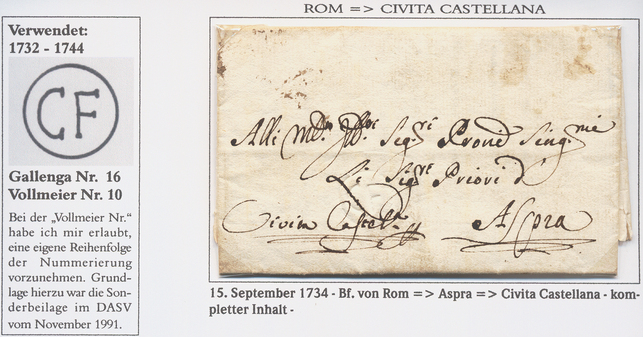 ROM => CIVITA CASTELLANA
Verwendet:
1732 - 1744
CF
Gallenga Nr. 16
Vollmeier Nr. 10
Bei der „Vollmeier Nr.“
habe ich mir erlaubt,
eine eigene Reihenfolge
der Nummerierung
vorzunehmen. Grund-
lage hierzu war die Son-
derbeilage im DASV
vom November 1991.
Alli
Priori d
Civita Castell Aspra
15. September 1734 - Bf. von Rom => Aspra => Civita Castellana - kom-
pletter Inhalt -